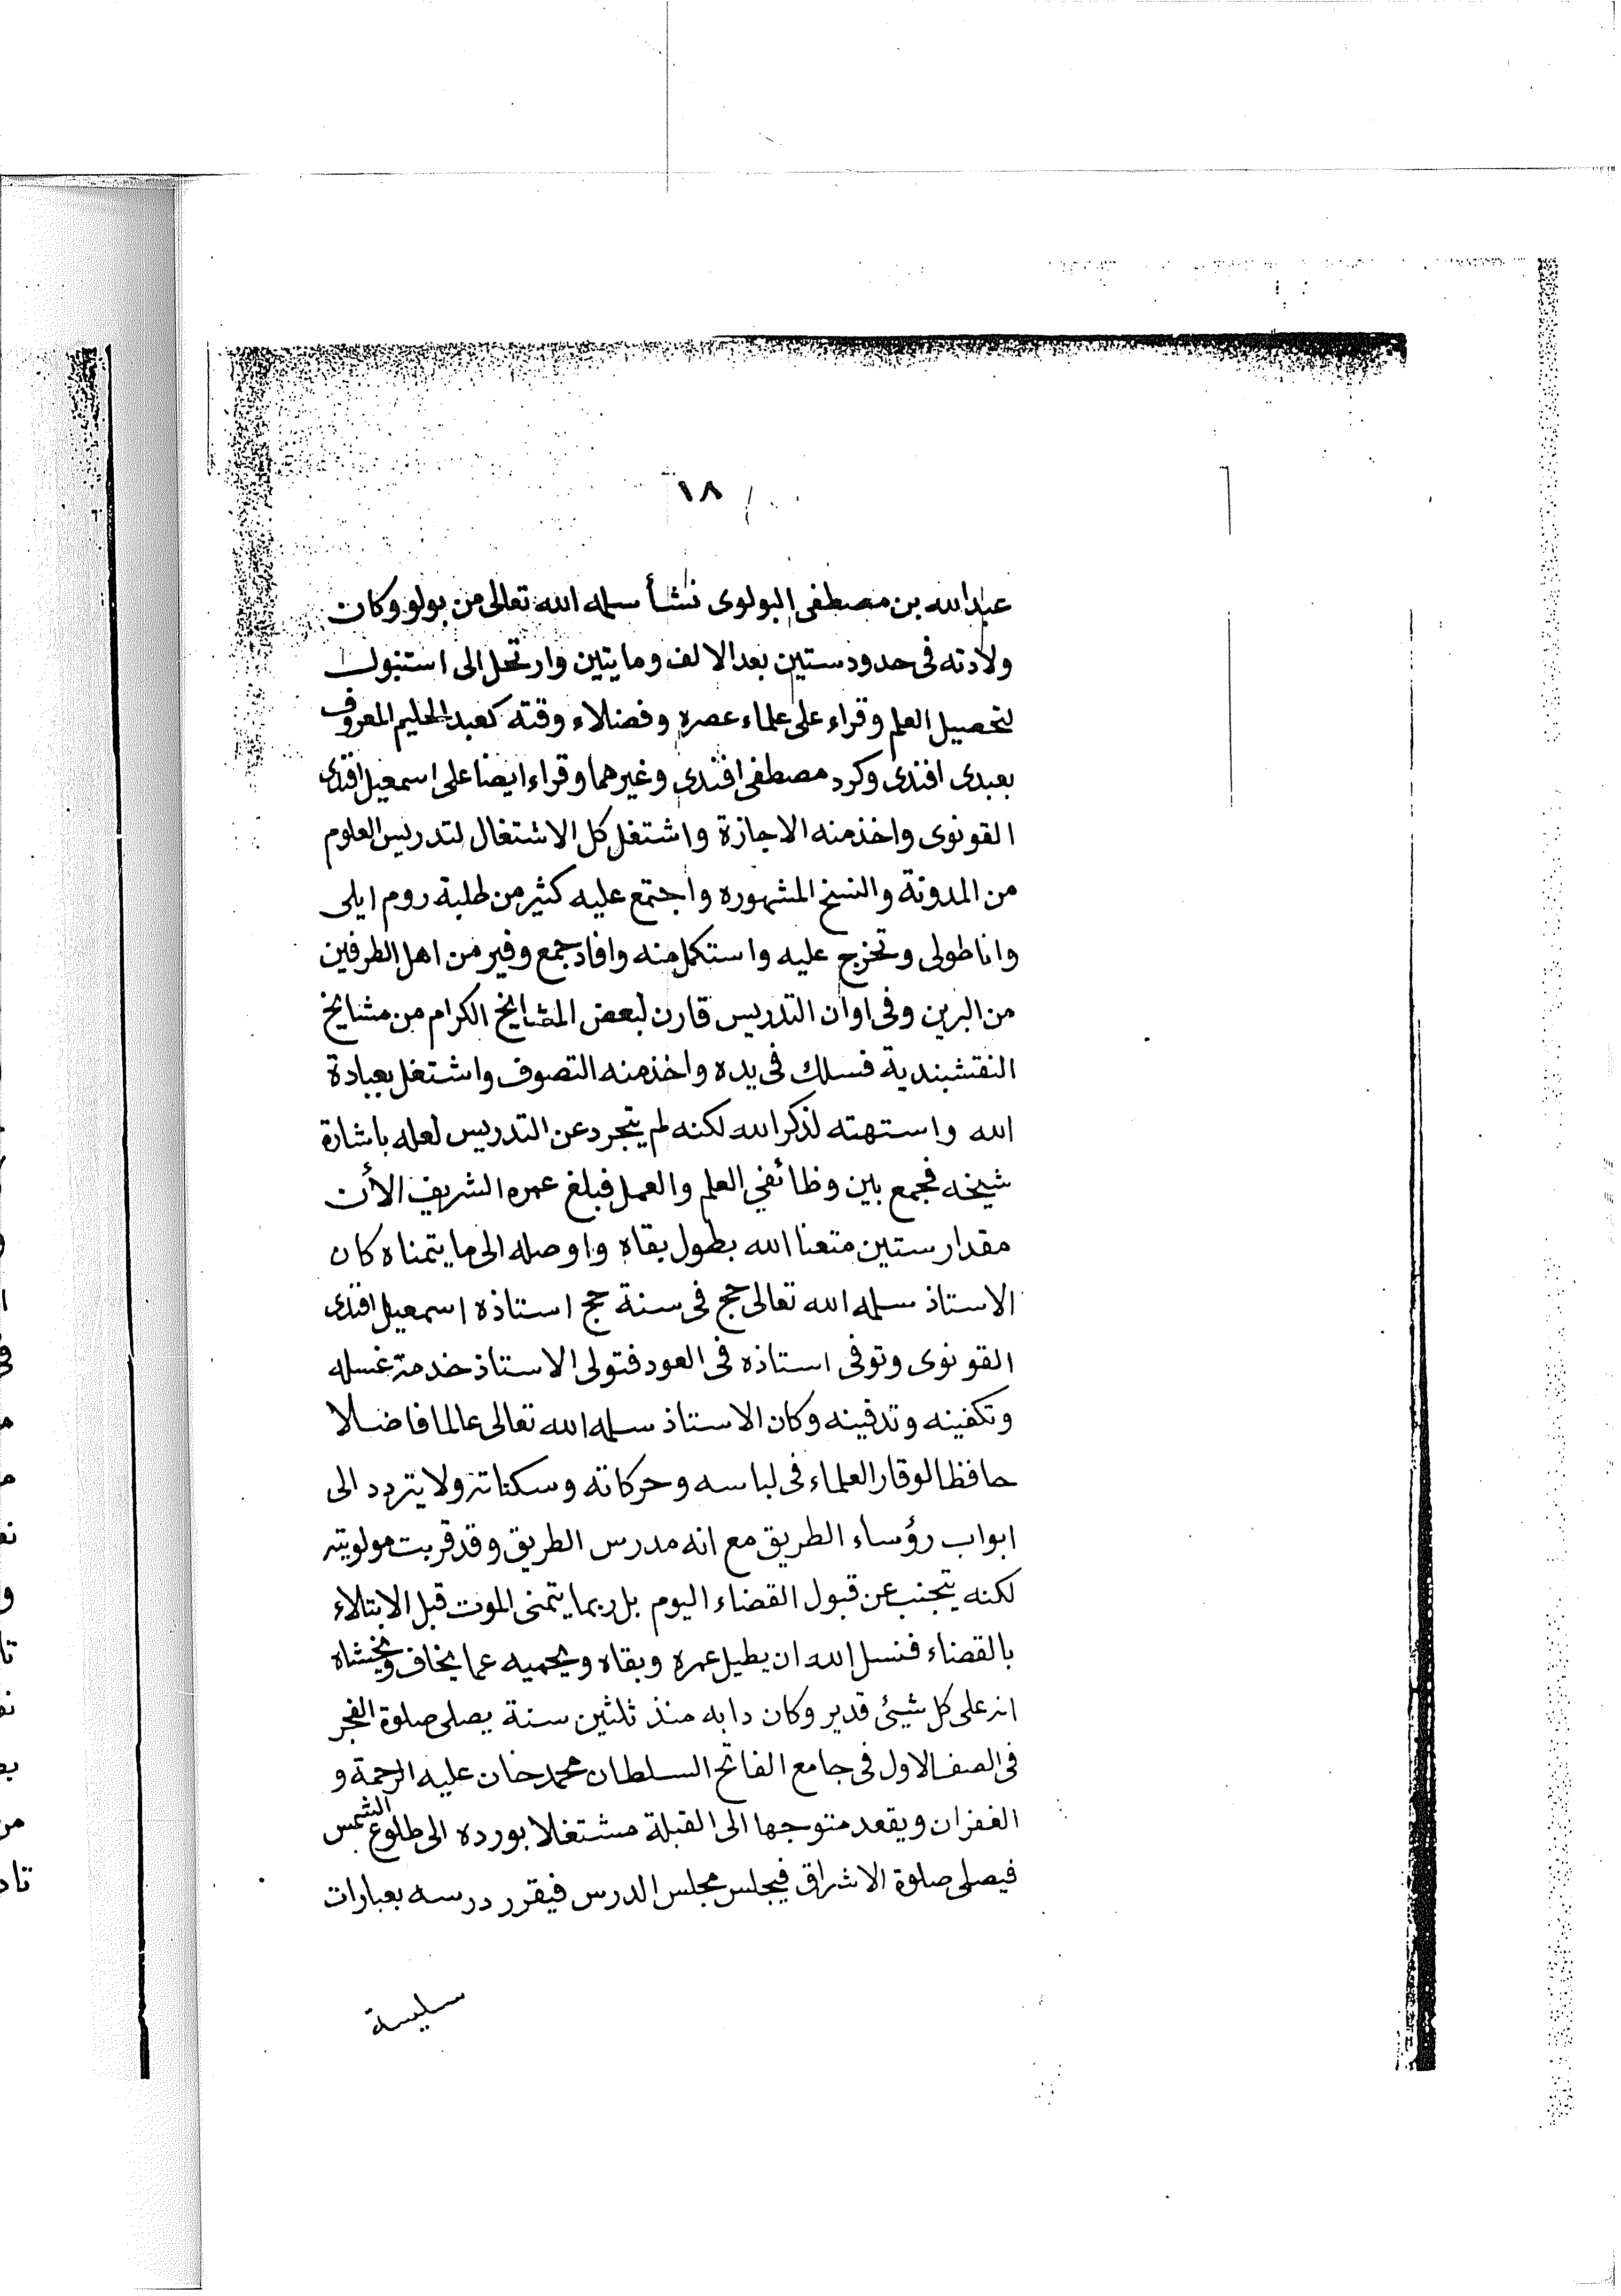 ١٨
عبدالله بن مصطفى البولوى نشأ سلمه الله تعالى من بولو وكان
ولادته فى حدود ستين بعد الالف ومايتين وارتحل الى استنبول
لتحصيل العلم وقراء على علماء عصره وفضلاء وقته كعبد الحليم المعروف
بعبدى افندى وكرد مصطفى افندى وغيرهما وقراء ايضا على اسمعيل افندى
القونوى واخذ منه الاجازة واشتغل كل الاشتغال لتدريس العلوم
من المدونة والنسخ المشهوره واجتمع عليه كثير من طلبة روم ايلى
واناطولى وتخرج عليه واستكمل منه وافاد جمع وفير من اهل الطرفين
من البرين وفى اوان التدريس قارن لبعض المشايخ الكرام من مشايخ
النقشبندية فسلك فى يده واخذ منه التصوف واشتغل بعبادة
الله واستهته لذكر الله لكنه لم يتجرد عن التدريس لعله باشارة
شيخه فجمع بين وظائفي العلم والعمل فبلغ عمره الشريف الأن
مقدار ستين متعنا الله بطول بقاه واوصله الى ما يتمناه كان
الاستاذ سلمه الله تعالى حج فى سنة حج استاذه اسمعيل افندى
القونوى وتوفى استاذه فى العود فتولى الاستاذ خدمة غسله
وتكفينه وتدفينه وكان الاستاذ سلمه الله تعالى عالما فاضلا
حافظا لوقار العلماء فى لباسه وحركاته وسكناته ولا يتردد الى
ابواب رؤساء الطريق مع انه مدرس الطريق وقد قربت مولويته
لكنه يتجنب عن قبول القضاء اليوم بل ربما يتمنى الموت قبل الابتلاء
بالقضاء فنسل الله ان يطيل عمره وبقاه ويحميه عما يخاف ويخشاه
انه على كل شيئ قدير وكان دابه منذ ثلثين سنة يصلى صلوة الفجر
فى الصف الاول فى جامع الفاتح السلطان محمد خان عليه الرحمة و
الغفران ويقعد متوجها الى القبلة مشتغلا بورده الى طلوع الشمس
فيصلى صلوة الاشراق فيجلس مجلس الدرس فيقرر درسه بعبارات
سليسة